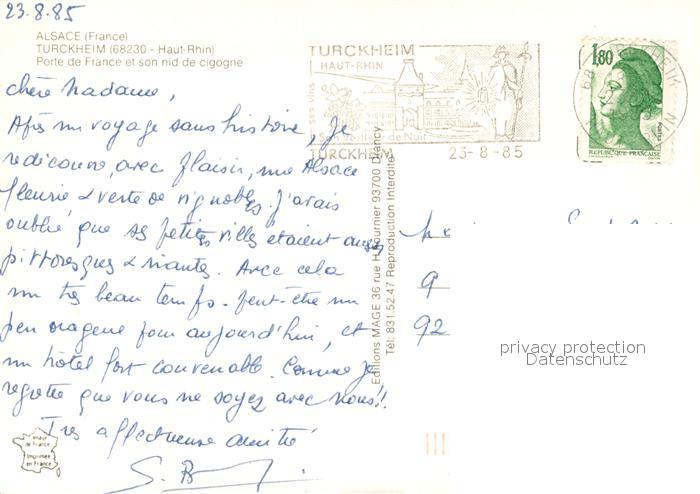 23.8.85
ALSACE (France)
TURCKHEIM (68230 - Haut-Rhin)
Porte de France et son nid de cigogne
TURCKHEIM
HAUT-RHIN
SES VINS
Son Veilleur de Nuit
TURCKHEIM 23-8-85
1,80
REPUBLIQUE FRANÇAISE
chère Madame,
Après un voyage sans histoire, Je
redécouvre, avec plaisir, une Alsace
fleurie & verte de vignobles. J'avais
oublié que ses petites villes étaient aussi
pittoresques & riantes. Avec cela
un très beau temps. Peut-être un
peu orageux pour aujourd'hui, et
un hôtel fort convenable. Comme Je
regrette que vous ne soyez avec nous!!
Très affectueuse amitié
Editions MAGE 36 rue H. Fournier 93700 Drancy
Tél: 831.52.47 Reproduction Interdite
9
92
privacy protection
Datenschutz
Image
de France
Imprimée
en France